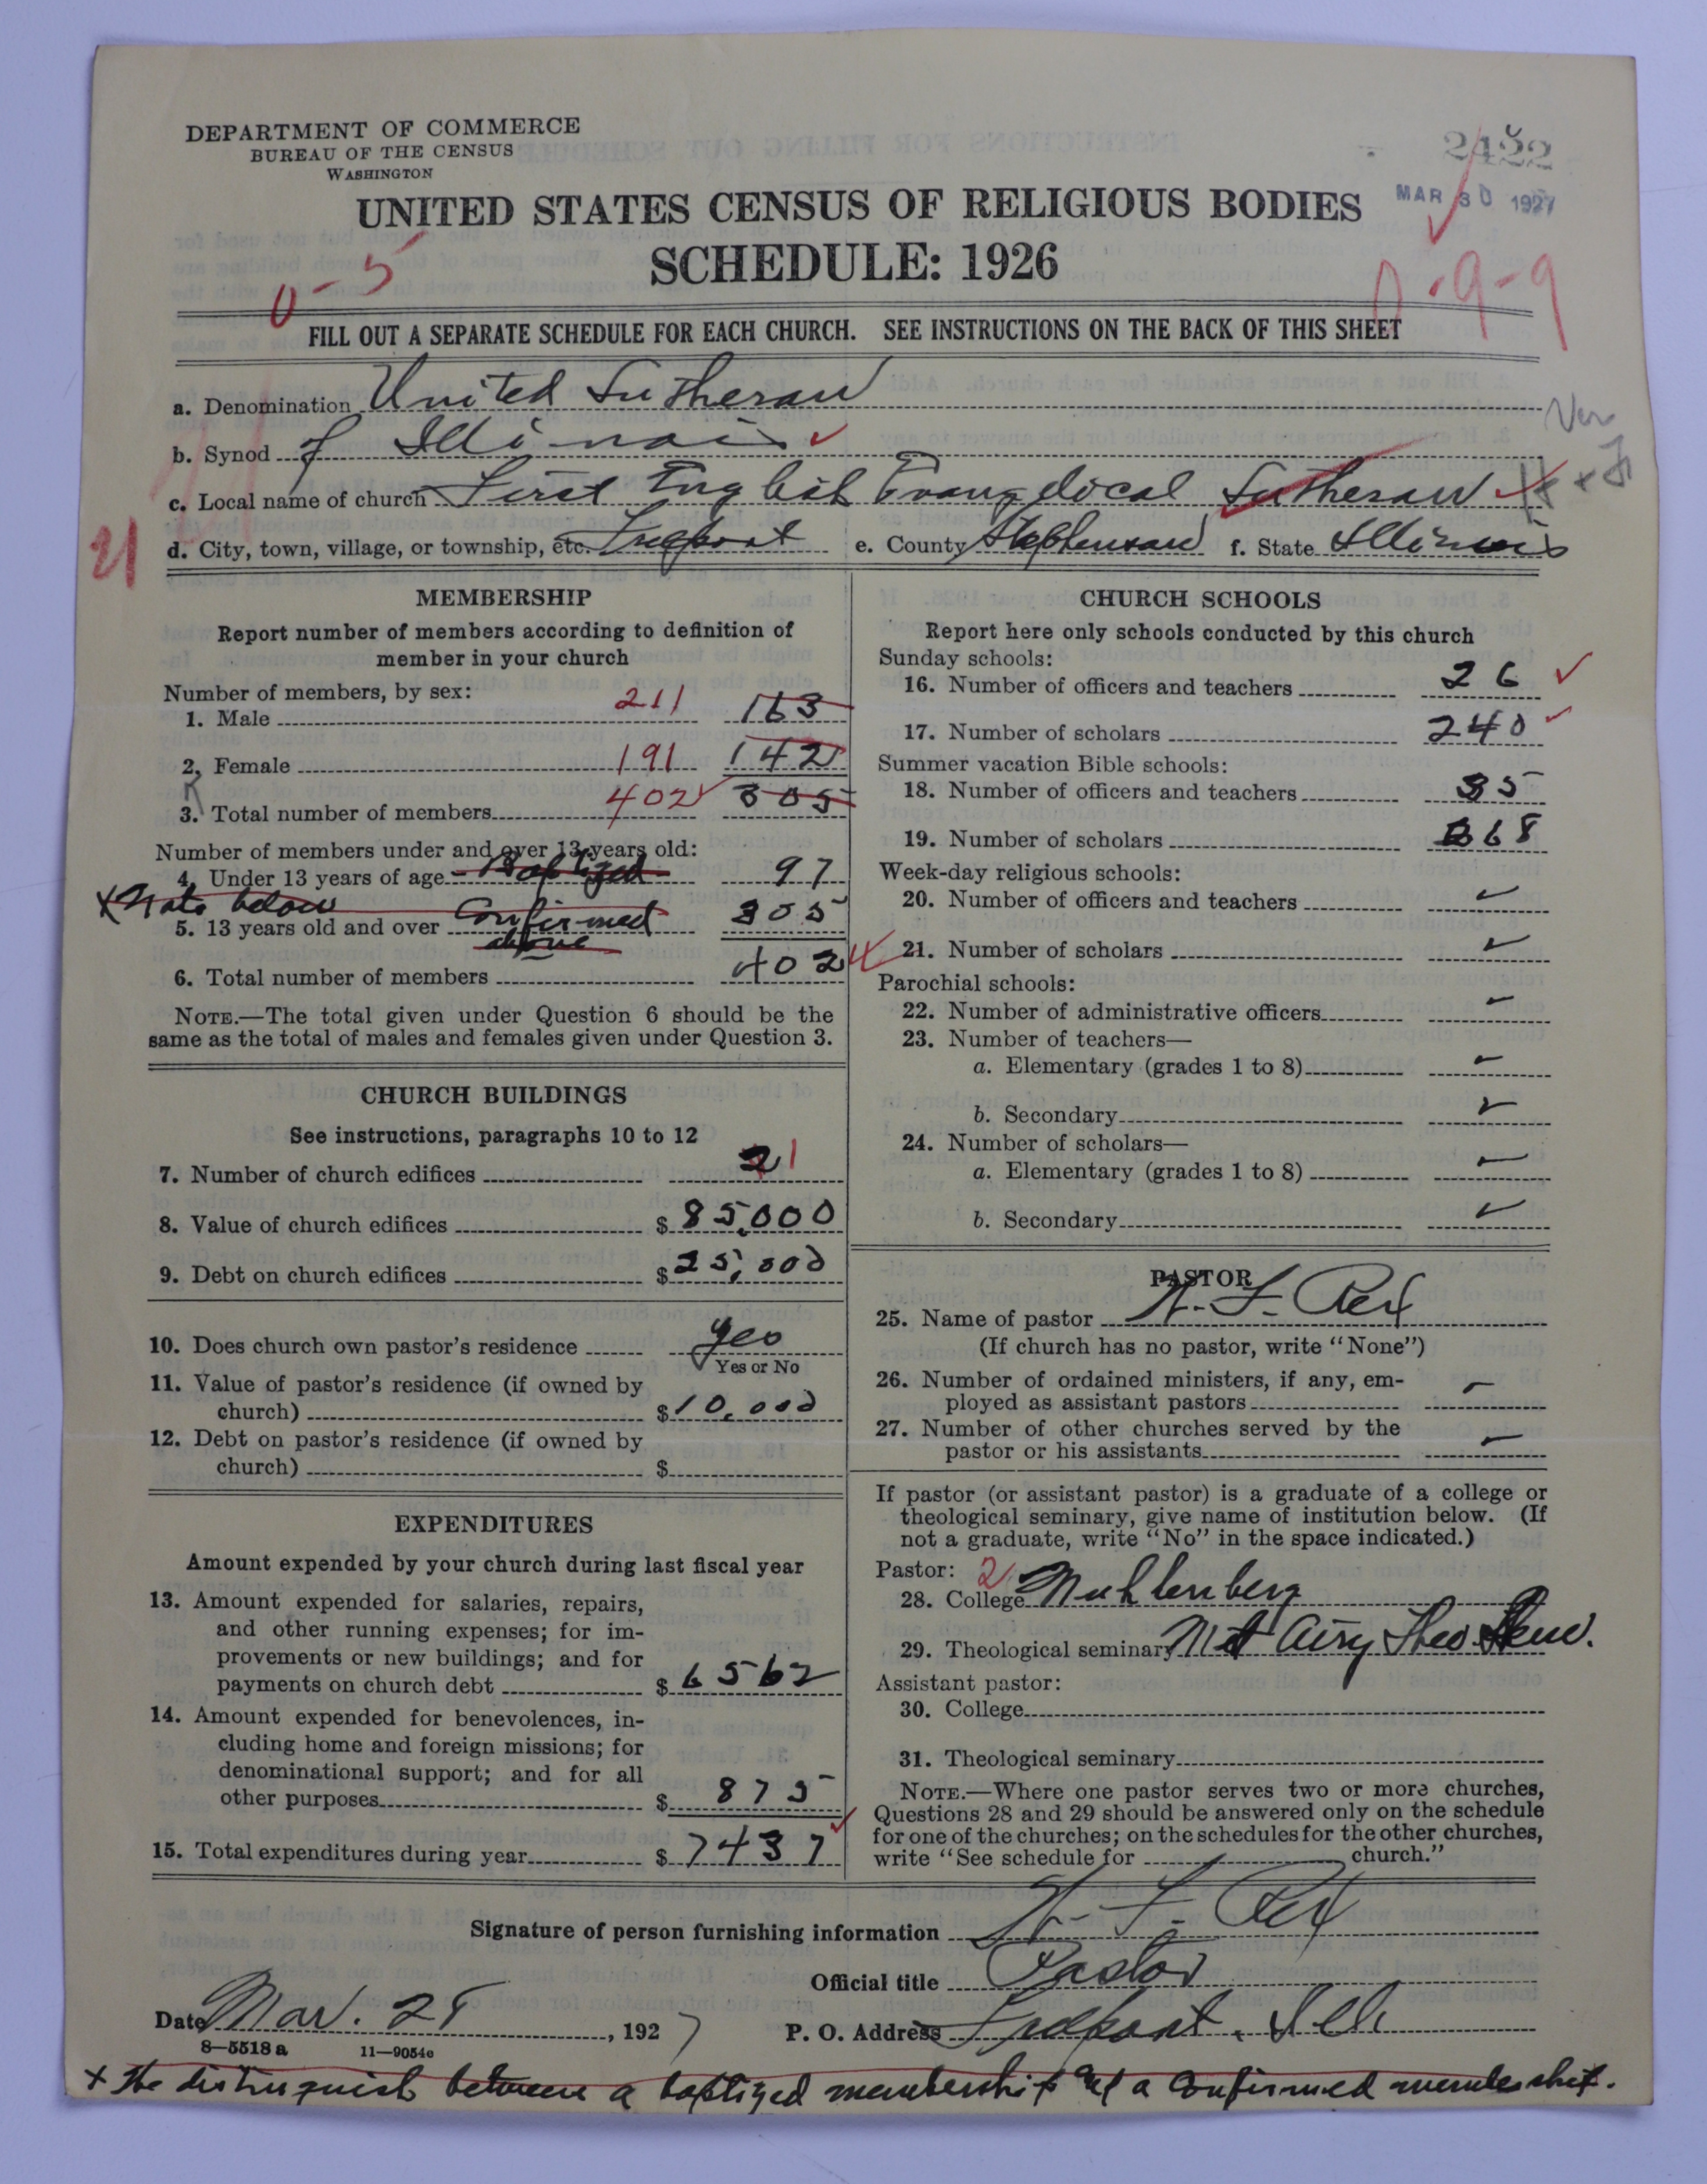 DEPARTMENT OF COMMERCE
BUREAU OF THE CENSUS
WASHINGTON
2422
MAR 30 1927
UNITED STATES CENSUS OF RELIGIOUS BODIES
SCHEDULE: 1926
0-5
0-9-9
FILL OUT A SEPARATE SCHEDULE FOR EACH CHURCH. SEE INSTRUCTIONS ON THE BACK OF THIS SHEET
a. Denomination United Lutheran
b. Synod of Illinois
c. Local name of church First English Evangelical Lutheran
d. City, town, village, or township, etc. Freeport e. County Stephenson f. State Illinois
MEMBERSHIP
Report number of members according to definition of
member in your church
Number of members, by sex:
1. Male 211 163
2. Female 191 142
3. Total number of members 402 305
Number of members under and over 13 years old:
4. Under 13 years of age Baptized 97
x Note below
5. 13 years old and over Confirmed 305
above
6. Total number of members 402
NOTE.—The total given under Question 6 should be the
same as the total of males and females given under Question 3.
CHURCH BUILDINGS
See instructions, paragraphs 10 to 12
7. Number of church edifices 2 1
8. Value of church edifices $ 85,000
9. Debt on church edifices $ 25,000
10. Does church own pastor's residence yes
Yes or No
11. Value of pastor's residence (if owned by
church) $ 10,000
12. Debt on pastor's residence (if owned by
church) $
EXPENDITURES
Amount expended by your church during last fiscal year
13. Amount expended for salaries, repairs,
and other running expenses; for im-
provements or new buildings; and for
payments on church debt $ 6562
14. Amount expended for benevolences, in-
cluding home and foreign missions; for
denominational support; and for all
other purposes $ 875
15. Total expenditures during year $ 7437
CHURCH SCHOOLS
Report here only schools conducted by this church
Sunday schools:
16. Number of officers and teachers 26
17. Number of scholars 240
Summer vacation Bible schools:
18. Number of officers and teachers 35
19. Number of scholars 368
Week-day religious schools:
20. Number of officers and teachers
21. Number of scholars
Parochial schools:
22. Number of administrative officers
23. Number of teachers—
a. Elementary (grades 1 to 8)
b. Secondary
24. Number of scholars—
a. Elementary (grades 1 to 8)
b. Secondary
PASTOR
25. Name of pastor F. Rex
(If church has no pastor, write "None")
26. Number of ordained ministers, if any, em-
ployed as assistant pastors
27. Number of other churches served by the
pastor or his assistants
If pastor (or assistant pastor) is a graduate of a college or
theological seminary, give name of institution below. (If
not a graduate, write "No" in the space indicated.)
Pastor: 2
28. College Muhlenberg
29. Theological seminary Mt Airy Theo. Sem.
Assistant pastor:
30. College
31. Theological seminary
NOTE.—Where one pastor serves two or more churches,
Questions 28 and 29 should be answered only on the schedule
for one of the churches; on the schedules for the other churches,
write "See schedule for church."
Signature of person furnishing information F. Rex
Official title Pastor
Date Mar. 28, 1927 P. O. Address Freeport, Ill
8—5518 a 11—9054c
x the distinguish between a baptized membership and a confirmed membership.